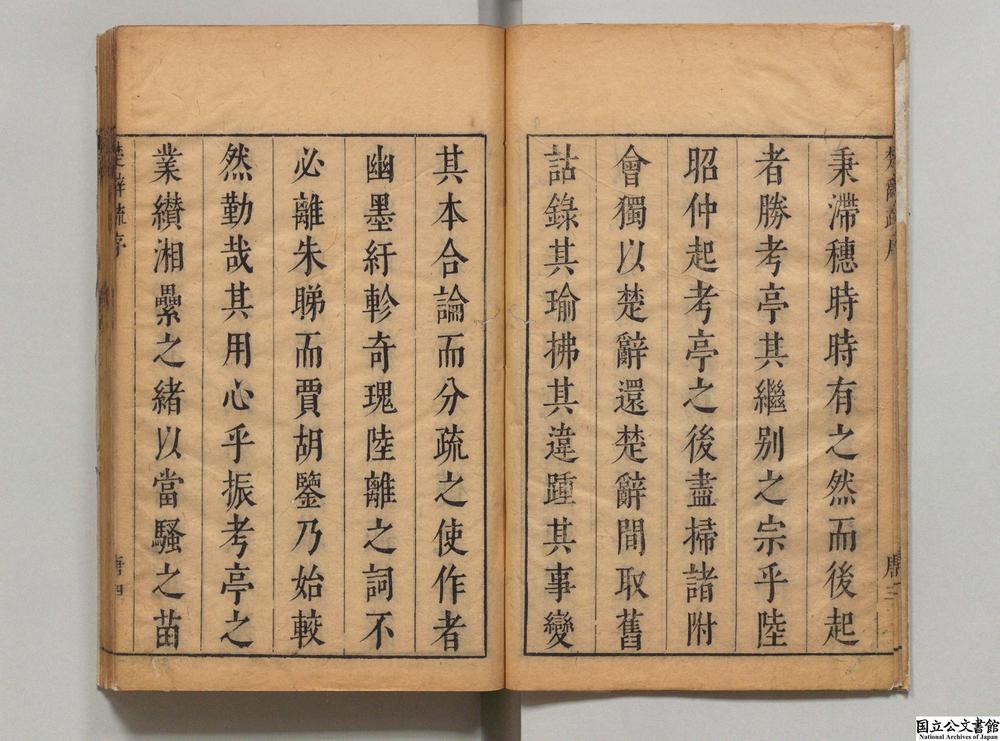 楚辭疏序
唐三
秉滯穗時時有之然而後起
者勝考亭其繼别之宗乎陸
昭仲起考亭之後盡掃諸附
會獨以楚辭還楚辭間取舊
詁錄其瑜拂其違踵其事變
其本合論而分疏之使作者
幽墨紆軫奇瑰陸離之詞不
必離朱睇而賈胡鑒乃始較
然勤哉其用心乎振考亭之
業纘湘纍之緒以當騷之苗
楚辭疏序
唐四
国立公文書館
National Archives of Japan